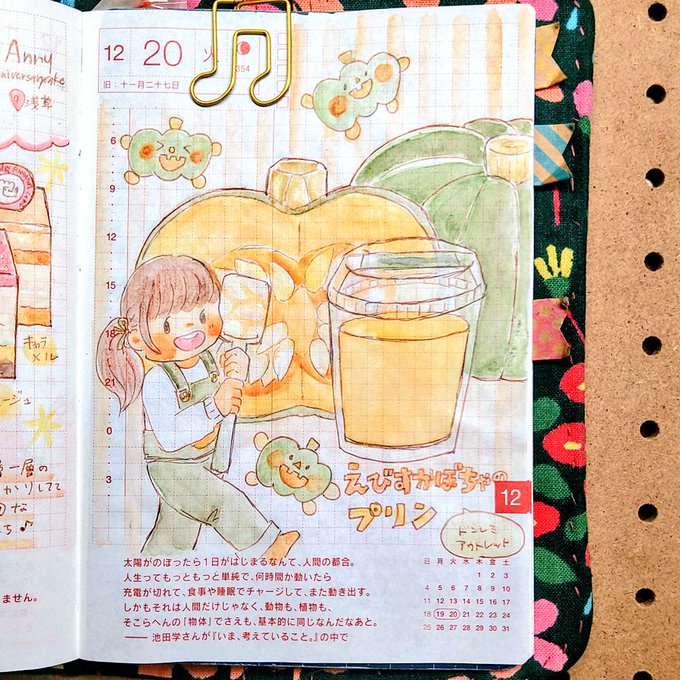 Anny
浅草
12 20 火
354
旧：十一月二十七日
6
9
12
15
18
21
0
3
えびすかぼちゃの
プリン
12
ドンレミー
アウトレット
太陽がのぼったら1日がはじまるなんて、人間の都合。
人生ってもっともっと単純で、何時間か動いたら
充電が切れて、食事や睡眠でチャージして、また動き出す。
しかもそれは人間だけじゃなく、動物も、植物も、
そこらへんの「物体」でさえも、基本的に同じなんだなあと。
—— 池田学さんが『いま、考えていること。』の中で
日 月 火 水 木 金 土
1 2 3
4 5 6 7 8 9 10
11 12 13 14 15 16 17
18 19 20 21 22 23 24
25 26 27 28 29 30 31
ません。